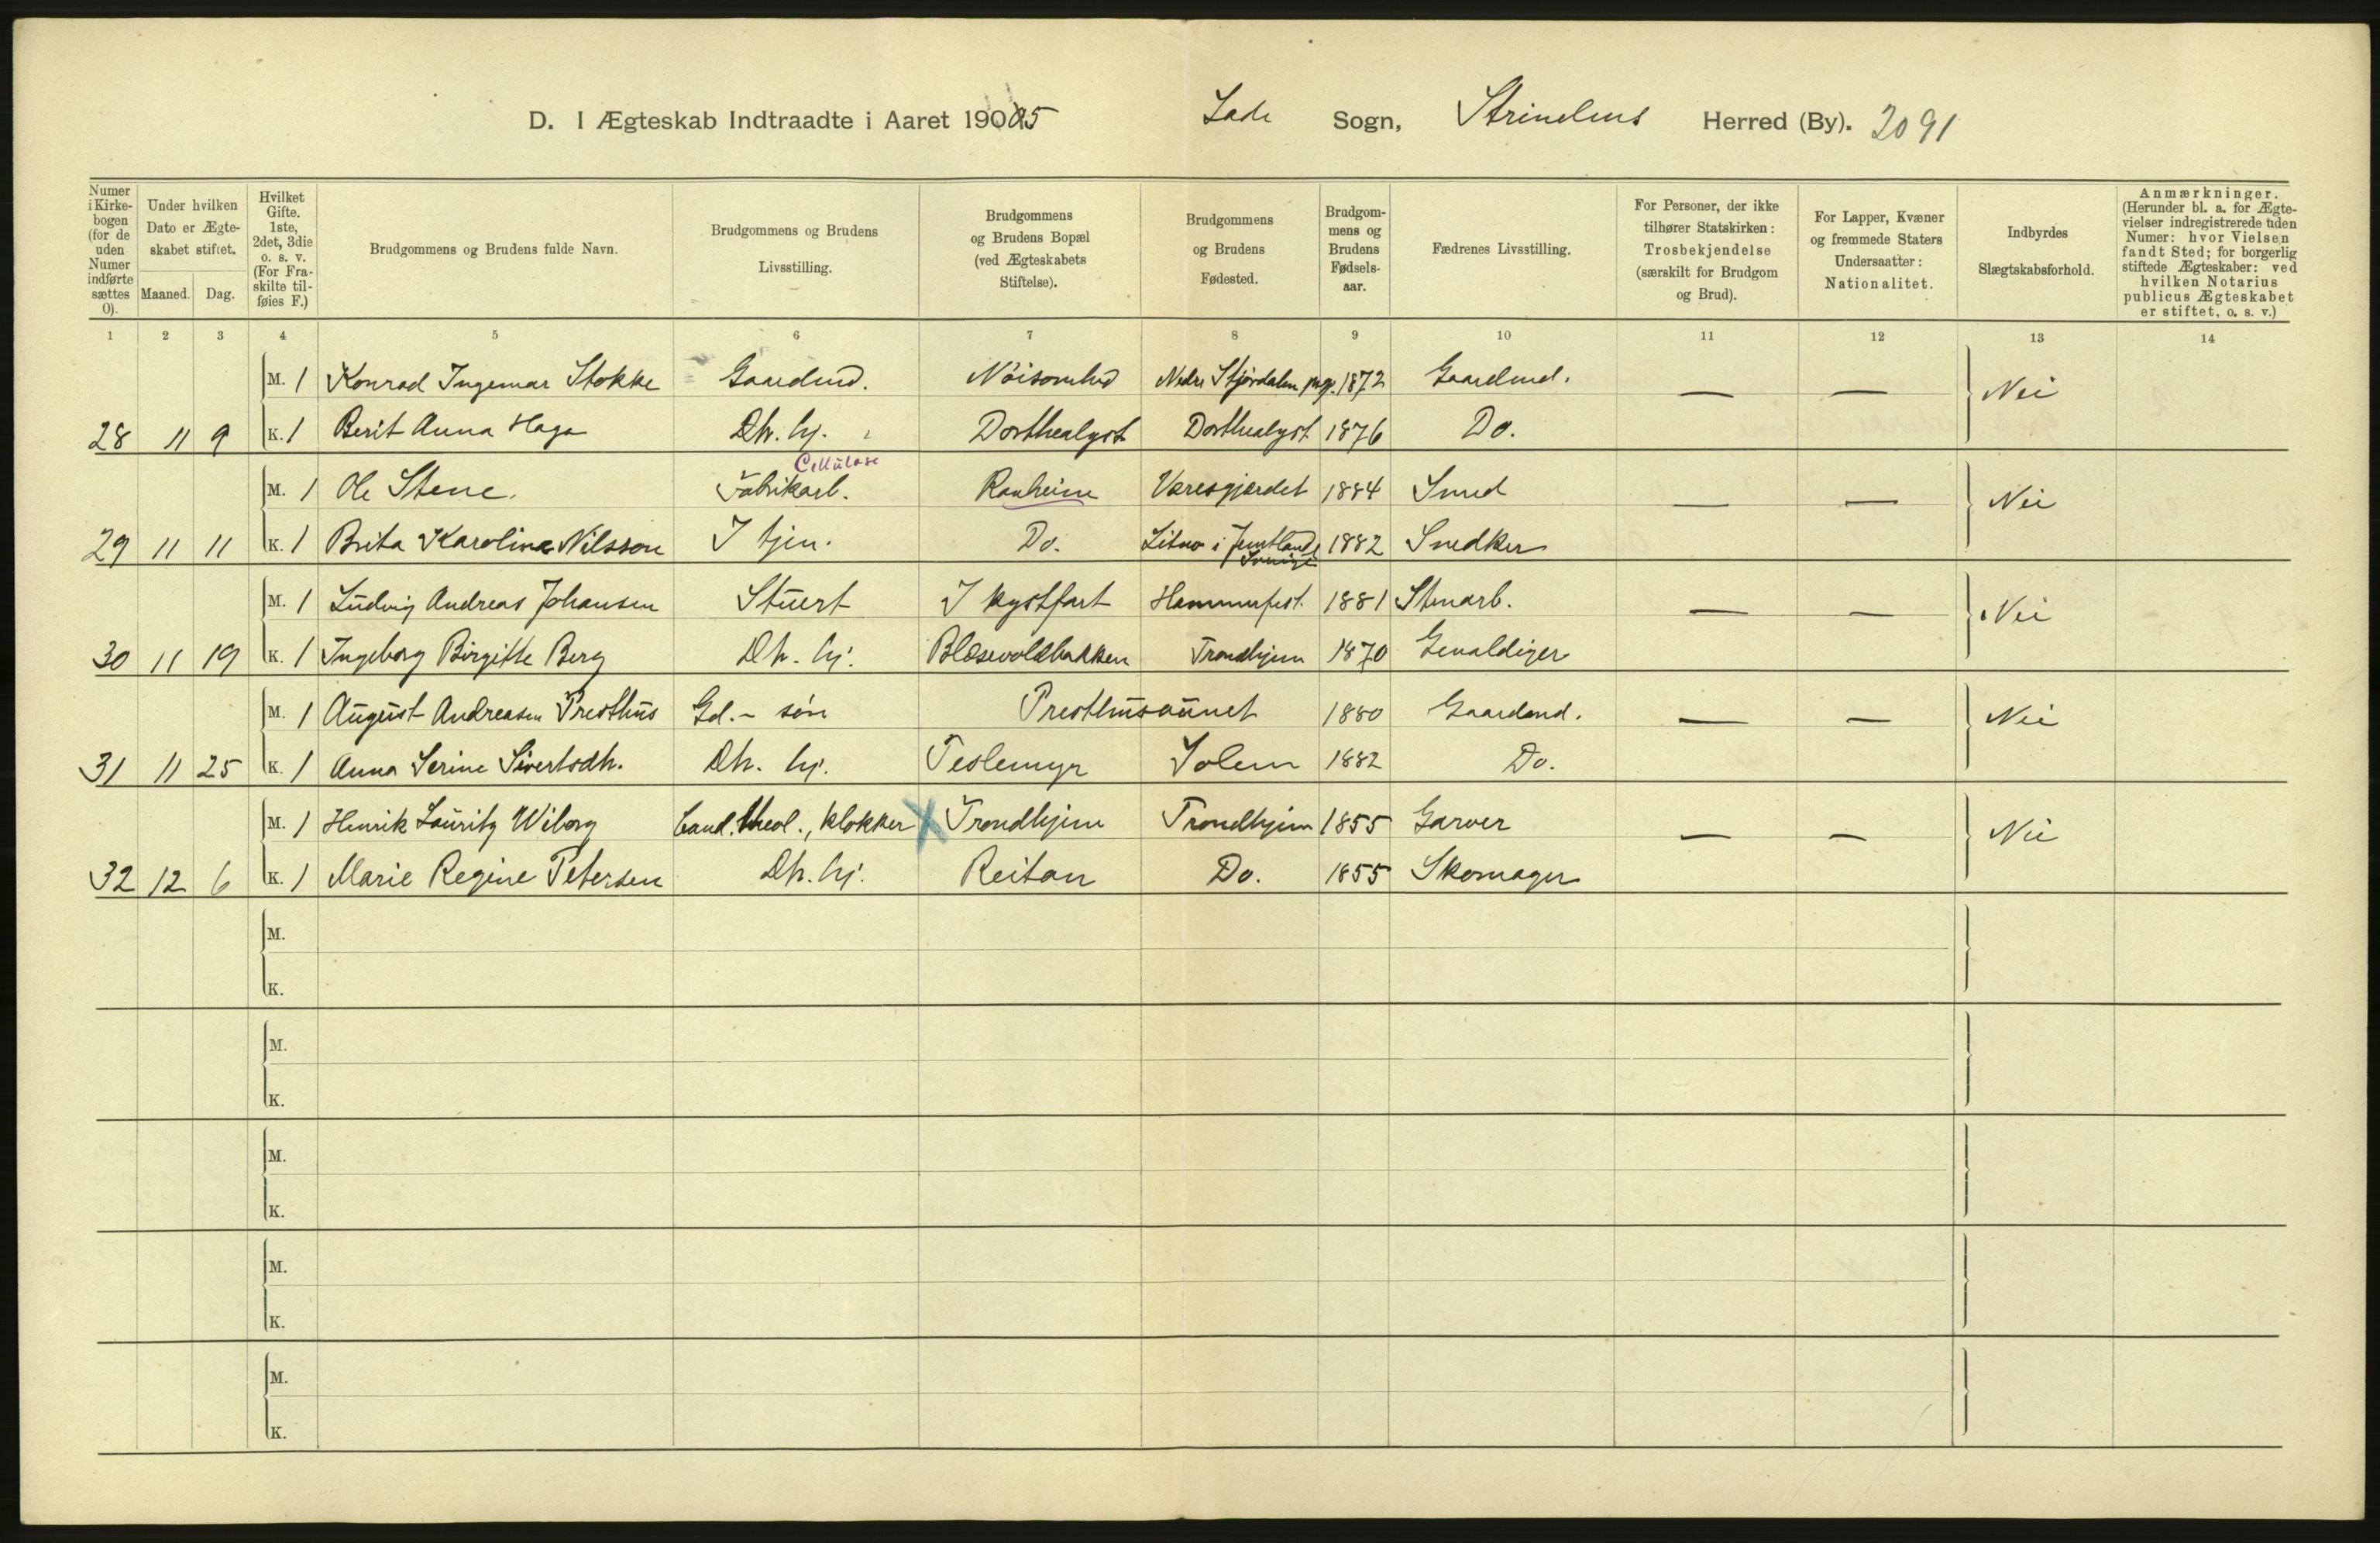 D. I Ægteskab Indtraadte i Aaret 19005 Lade Sogn, Strindens Herred (By). 2091
Numer i Kirkebogen (for de uden Numer indførte sættes 0).
Under hvilken Dato er Ægteskabet stiftet.
Maaned. Dag.
Hvilket Gifte. 1ste, 2det, 3die o. s. v. (For Fraskilte tilføies F.)
Brudgommens og Brudens fulde Navn.
Brudgommens og Brudens Livsstilling.
Brudgommens og Brudens Bopæl (ved Ægteskabets Stiftelse).
Brudgommens og Brudens Fødested.
Brudgommens og Brudens Fødselsaar.
Fædrenes Livsstilling.
For Personer, der ikke tilhører Statskirken: Trosbekjendelse (særskilt for Brudgom og Brud).
For Lapper, Kvæner og fremmede Staters Undersaatter: Nationalitet.
Indbyrdes Slægtskabsforhold.
Anmærkninger. (Herunder bl. a. for Ægtevielser indregistrerede uden Numer: hvor Vielsen fandt Sted; for borgerlig stiftede Ægteskaber: ved hvilken Notarius publicus Ægteskabet er stiftet, o. s. v.)
1 2 3 4 5 6 7 8 9 10 11 12 13 14
M. 1 Konrad Ingemar Stokke Gaardmd. Nøisomhed Nedre Stjørdalen pgj. 1872 Gaardmd. — — Nei
28 11 9 K. 1 Berit Anna Haga Dtr. hj. Dorthealyst Dorthealyst 1876 Do.
Cellulose
M. 1 Ole Stene. Fabrikarb. Ranheim Væresgjærdet 1884 Smed — — Nei
29 11 11 K. 1 Brita Karolina Nilsson I tjen. Do. Litnø i Jemtland 1882 Snedker
Sverige
M. 1 Ludvig Andreas Johansen Stuert I kystfart Hammerfest. 1881 Stenarb. — — Nei
30 11 19 K. 1 Ingeborg Birgitte Berg Dtr. hj. Blæsevoldbakken Trondhjem 1870 Gevaldiger
M. 1 August Andreasen Presthus Gd.- søn Presthusaunet 1880 Gaardmd. — — Nei
31 11 25 K. 1 Anna Serine Sivertsdtr. Dtr. hj. Teslemyr Solem 1882 Do.
M. 1 Henrik Lauritz Wiborg Cand. theol., klokker X Trondhjem Trondhjem 1855 Garver — — Nei
32 12 6 K. 1 Marie Regine Petersen Dtr. hj. Reitan Do. 1855 Skomager
M.
K.
M.
K.
M.
K.
M.
K.
M.
K.